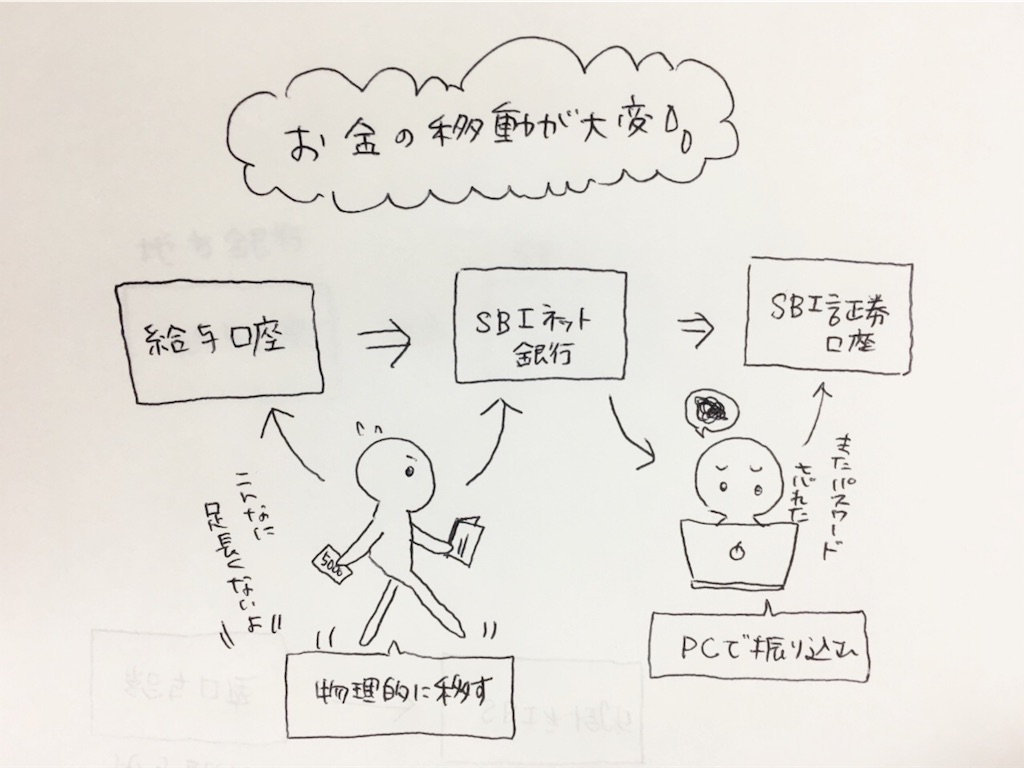 お金の移動が大変
給与口座
SBIネット
銀行
SBI証券
口座
こんなに
足長くないよ
5000
物理的に移す
また パスワード
忘れた
PCで振り込む